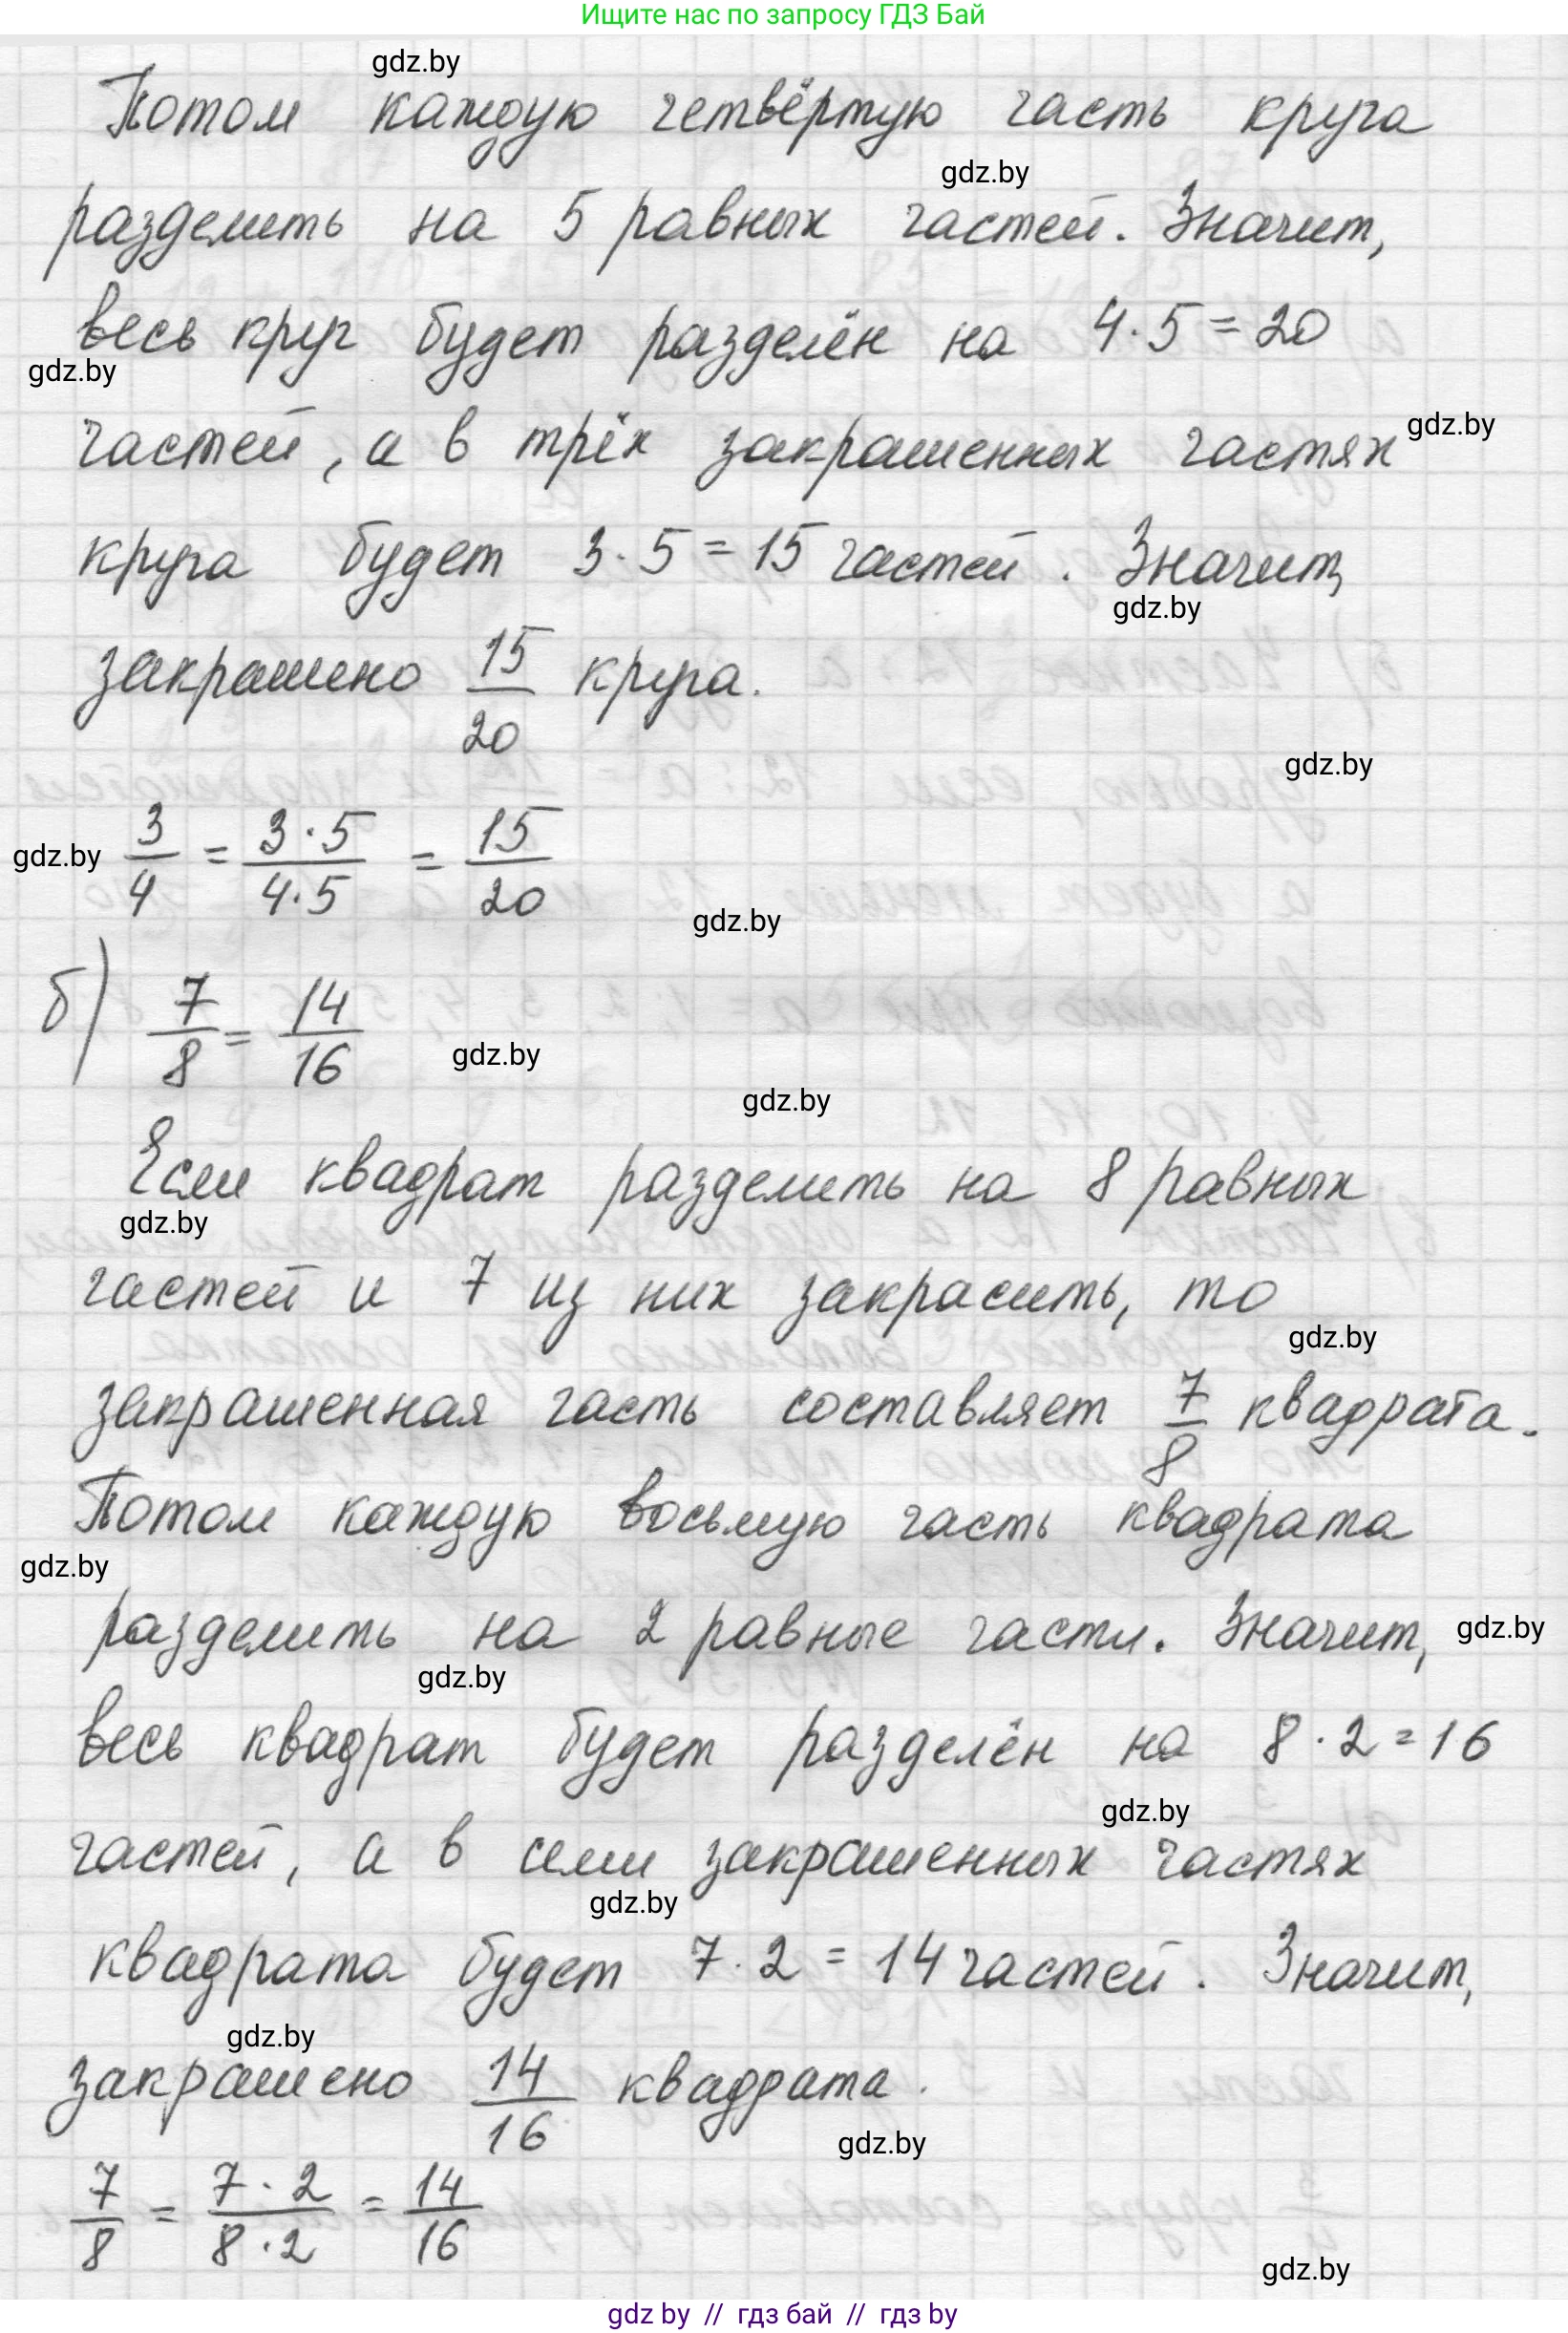 Ищите нас по запросу ГДЗ Бай
gdz.by
Потом каждую четвёртую часть круга
gdz.by
разделить на 5 равных частей. Значит,
весь круг будет разделён на 4·5=20
gdz.by
частей, а в трёх закрашенных частях
gdz.by
круга будет 3·5=15 частей. Значит,
gdz.by
закрашено 15/20 круга.
gdz.by
gdz.by
3/4 = 3·5/4·5 = 15/20
gdz.by
б) 7/8 = 14/16
gdz.by
gdz.by
Если квадрат разделить на 8 равных
gdz.by
частей и 7 из них закрасить, то
gdz.by
закрашенная часть составляет 7/8 квадрата.
Потом каждую восьмую часть квадрата
gdz.by
разделить на 2 равные части. Значит,
gdz.by
gdz.by
весь квадрат будет разделён на 8·2=16
gdz.by
частей, а в семи закрашенных частях
gdz.by
квадрата будет 7·2=14 частей. Значит,
gdz.by
закрашено 14/16 квадрата.
gdz.by
7/8 = 7·2/8·2 = 14/16
gdz.by
gdz by // гдз бай // гдз by